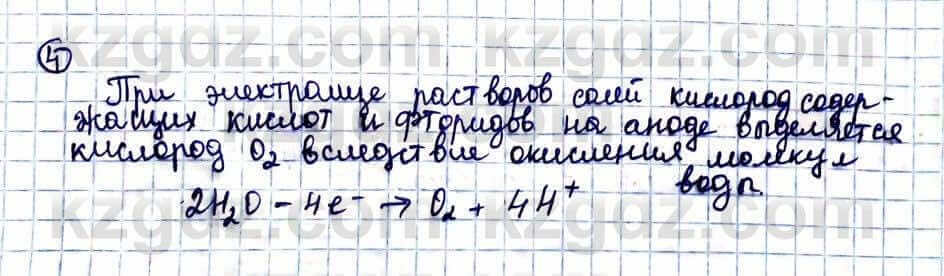 kzgdz.com kzgdz.com
④
При электролизе растворов солей кислород содер-
жащих кислот и фторидов на аноде выделяется
кислород O₂ вследствие окисления молекул
воды.
2H₂O - 4e⁻ → O₂ + 4H⁺